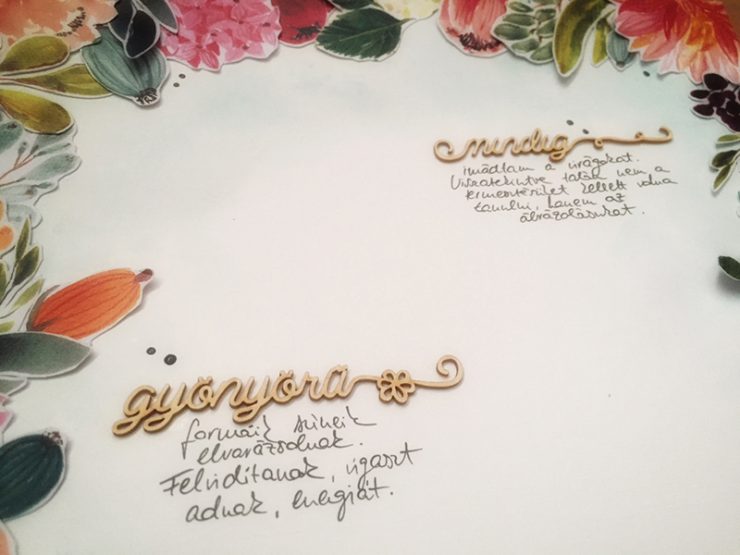 mindig
imádtam a virágokat.
Visszatekintve talán nem a
termesztésüket kellett volna
tanulni, hanem az
ábrázolásukat.
gyönyörű
formáik színeik
elvarázsolnak.
Felvidítanak, vigaszt
adnak, energiát.